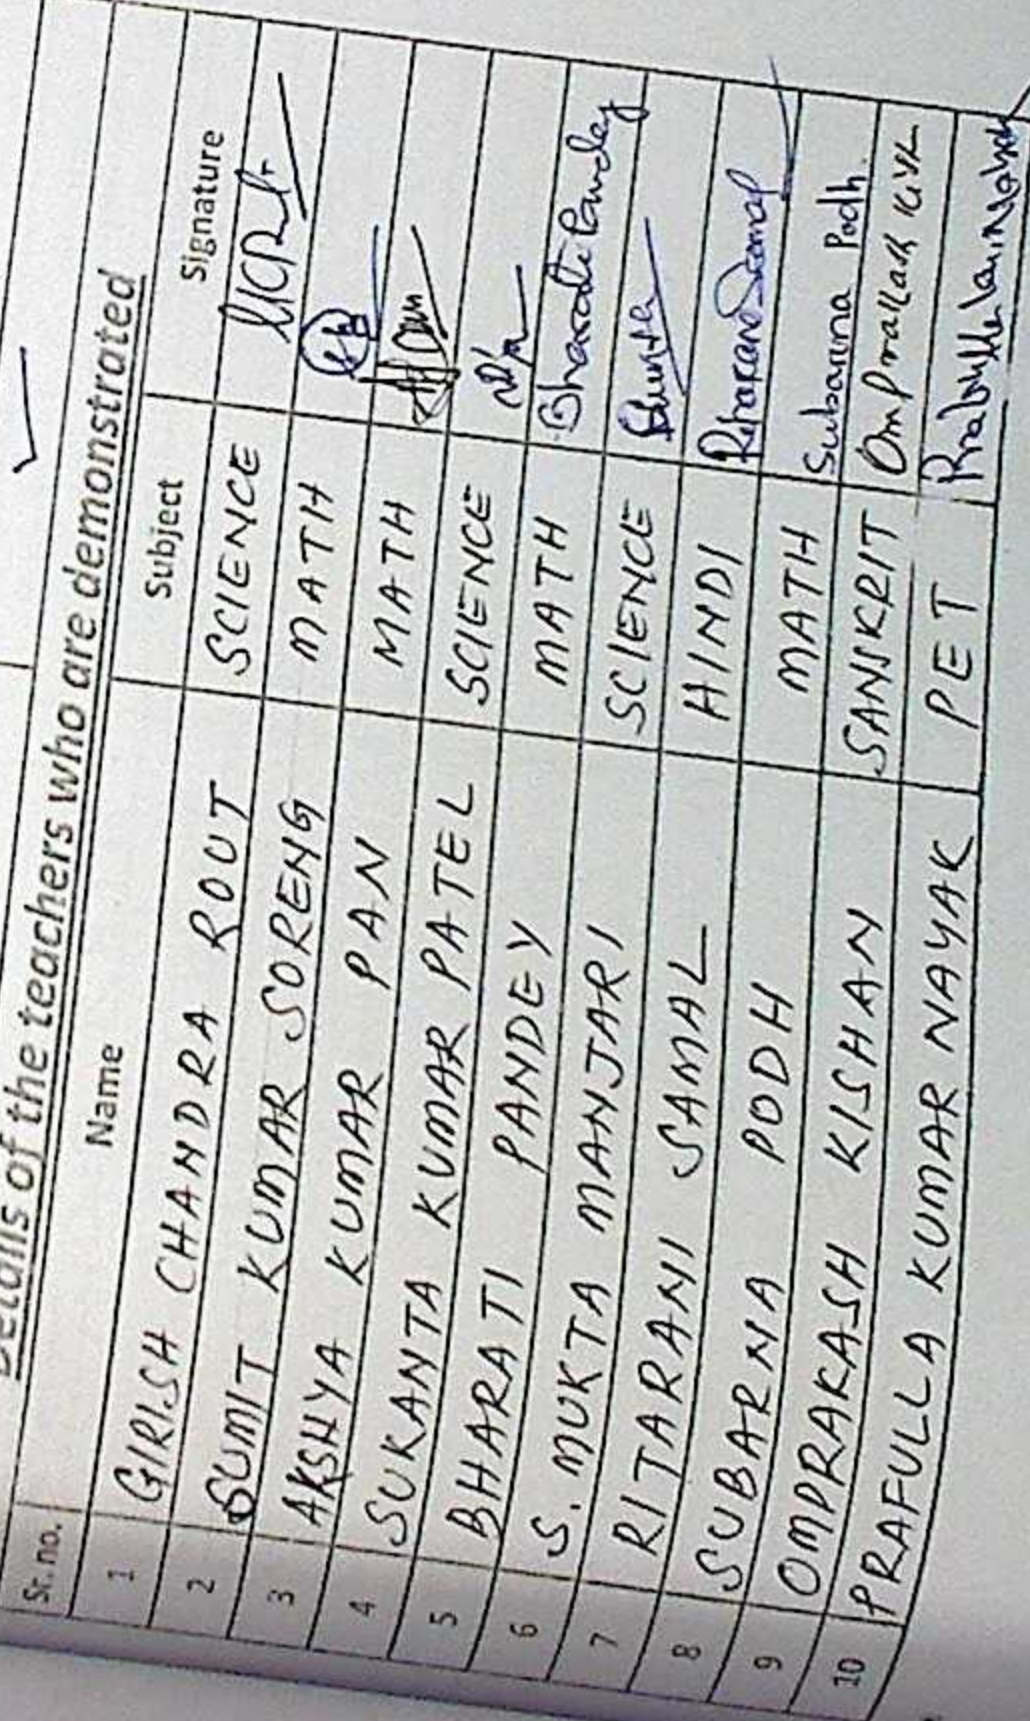 Details of the teachers who are demonstrated
Sr. no. Name Subject Signature
1 GIRISH CHANDRA ROUT SCIENCE
2 SUMIT KUMAR SORENG MATH
3 AKSHYA KUMAR PAN MATH
4 SUKANTA KUMAR PATEL SCIENCE
5 BHARATI PANDEY MATH Bharati Pandey
6 S. MUKTA MANJARI SCIENCE
7 RITARANI SAMAL HINDI Ritarani Samal
8 SUBARNA PODH MATH Subarna Podh
9 OMPRAKASH KISHAN SANSKRIT Omprakash
10 PRAFULLA KUMAR NAYAK PET